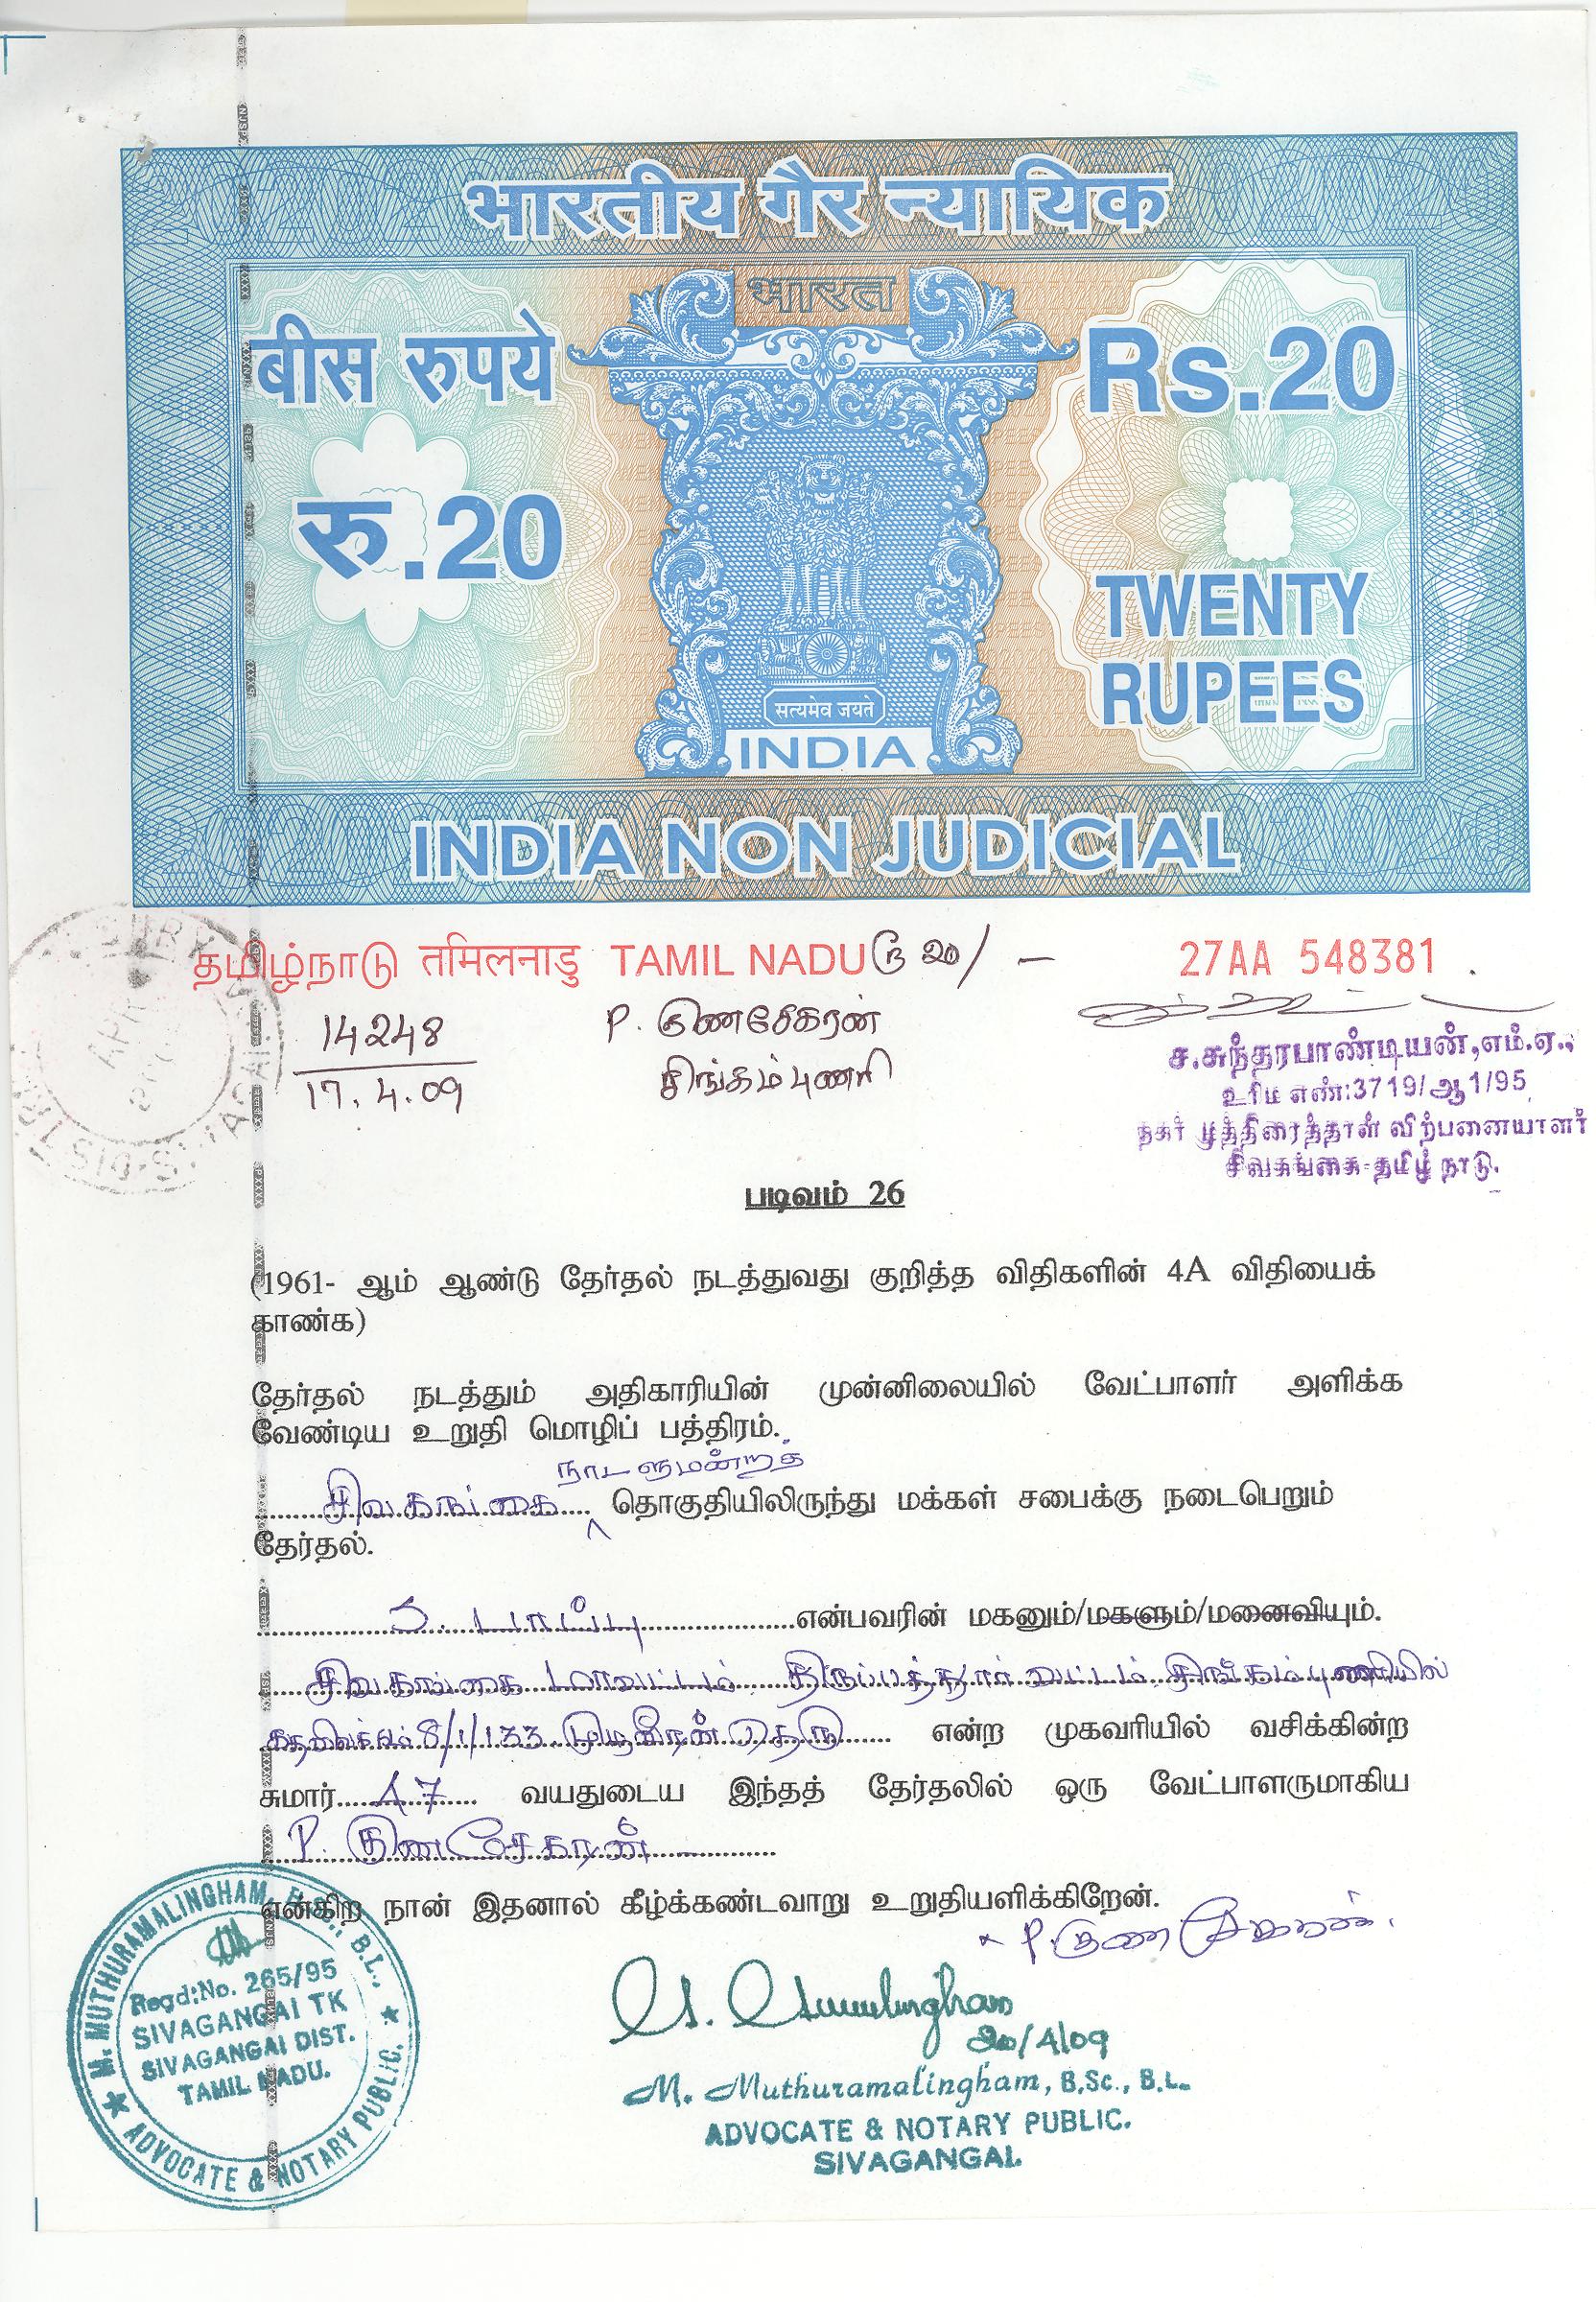 भारतीय गैर न्यायिक
भारत
बीस रुपये
Rs.20
रु.20
TWENTY
RUPEES
सत्यमेव जयते
INDIA
INDIA NON JUDICIAL
தமிழ்நாடு तमिलनाडु TAMIL NADU ரூ 20/ -
27AA 548381
14248
17.4.09
P. குணசேகரன்
சிங்கம்புணரி
ச.சுந்தரபாண்டியன்,எம்.ஏ.,
உரிம எண்:3719/ஆ1/95
நகர் முத்திரைத்தாள் விற்பனையாளர்
சிவகங்கை-தமிழ் நாடு.
படிவம் 26
(1961- ஆம் ஆண்டு தேர்தல் நடத்துவது குறித்த விதிகளின் 4A விதியைக்
காண்க)
தேர்தல் நடத்தும் அதிகாரியின் முன்னிலையில் வேட்பாளர் அளிக்க
வேண்டிய உறுதி மொழிப் பத்திரம்.
நாடாளுமன்றத்
சிவகங்கை தொகுதியிலிருந்து மக்கள் சபைக்கு நடைபெறும்
தேர்தல்.
பாப்பு என்பவரின் மகனும்/மகளும்/மனைவியும்.
சிவகங்கை மாவட்டம் திருப்பத்தூர் வட்டம் சிங்கம்புணரியில்
8/1/133 தெரு என்ற முகவரியில் வசிக்கின்ற
சுமார் 47 வயதுடைய இந்தத் தேர்தலில் ஒரு வேட்பாளருமாகிய
P. குணசேகரன்
என்கிற நான் இதனால் கீழ்க்கண்டவாறு உறுதியளிக்கிறேன்.
P. குணசேகரன்
20/4/09
M. Muthuramalingham, B.Sc., B.L.
ADVOCATE & NOTARY PUBLIC.
SIVAGANGAI.
M. MUTHURAMALINGHAM, B.Sc., B.L.,
Regd:No. 265/95
SIVAGANGAI TK
SIVAGANGAI DIST.
TAMIL NADU.
ADVOCATE & NOTARY PUBLIC.